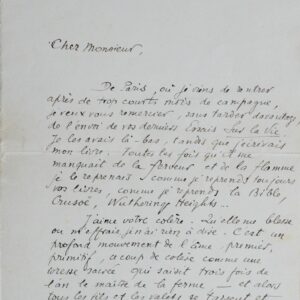 Cher Monsieur,
De Paris, où je viens de rentrer
après de trop courts mois de campagne,
je veux vous remercier, sans tarder davantage
de l'envoi de vos derniers Essais sur la Vie.
Je les avais là-bas, tandis que j'écrivais
mon livre. Toutes les fois qu'il me
manquait de la ferveur et de la flamme
je le reprenais - comme je reprends toujours
vos livres, comme je reprends la Bible,
Crusoé, Wuthering Heights...
J'aime votre colère. Qu'elle me blesse
ou m'effraie, je n'ai rien à dire. C'est un
profond mouvement de l'âme, premier,
primitif, a coup de colère comme une
ivresse sacrée qui saisit trois fois de
l'an le maître de la ferme — et alors
tous les fils et les valets se taisent et